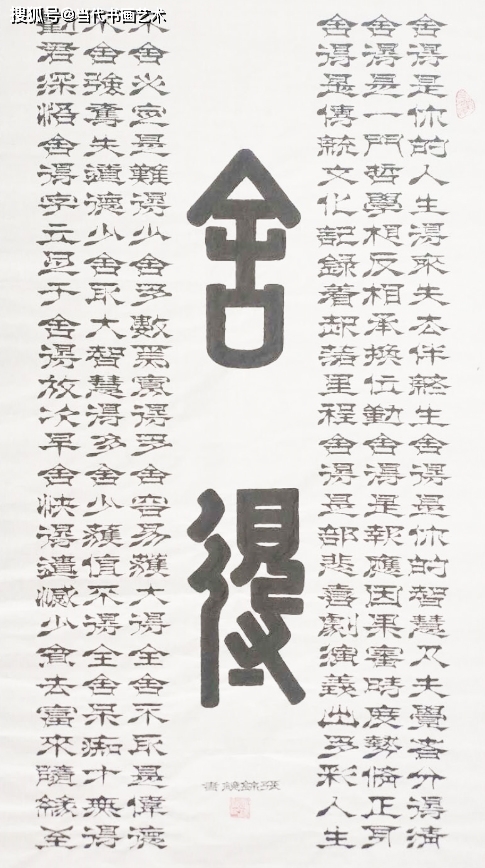 搜狐号@当代书画艺术
舍得是你的人生得來失去伴終生舍得是你的智慧夫覺吝分得清
舍得是一門哲學相反相承換位勤舍得是報應因果審時度勢悟正
舍得是傳統文化記錄着部落里程舍得是部悲喜劇演義出多彩人生
舍得
舍必定是難得少舍多數得多舍容易獲大得全舍不取是偉德
舍強奪失道德少舍取大智慧得多舍少獲值不得全舍呆痴才無得
勸君深悟舍得字立足于舍得放次早舍快得遺滅少貪去富來隨緣至